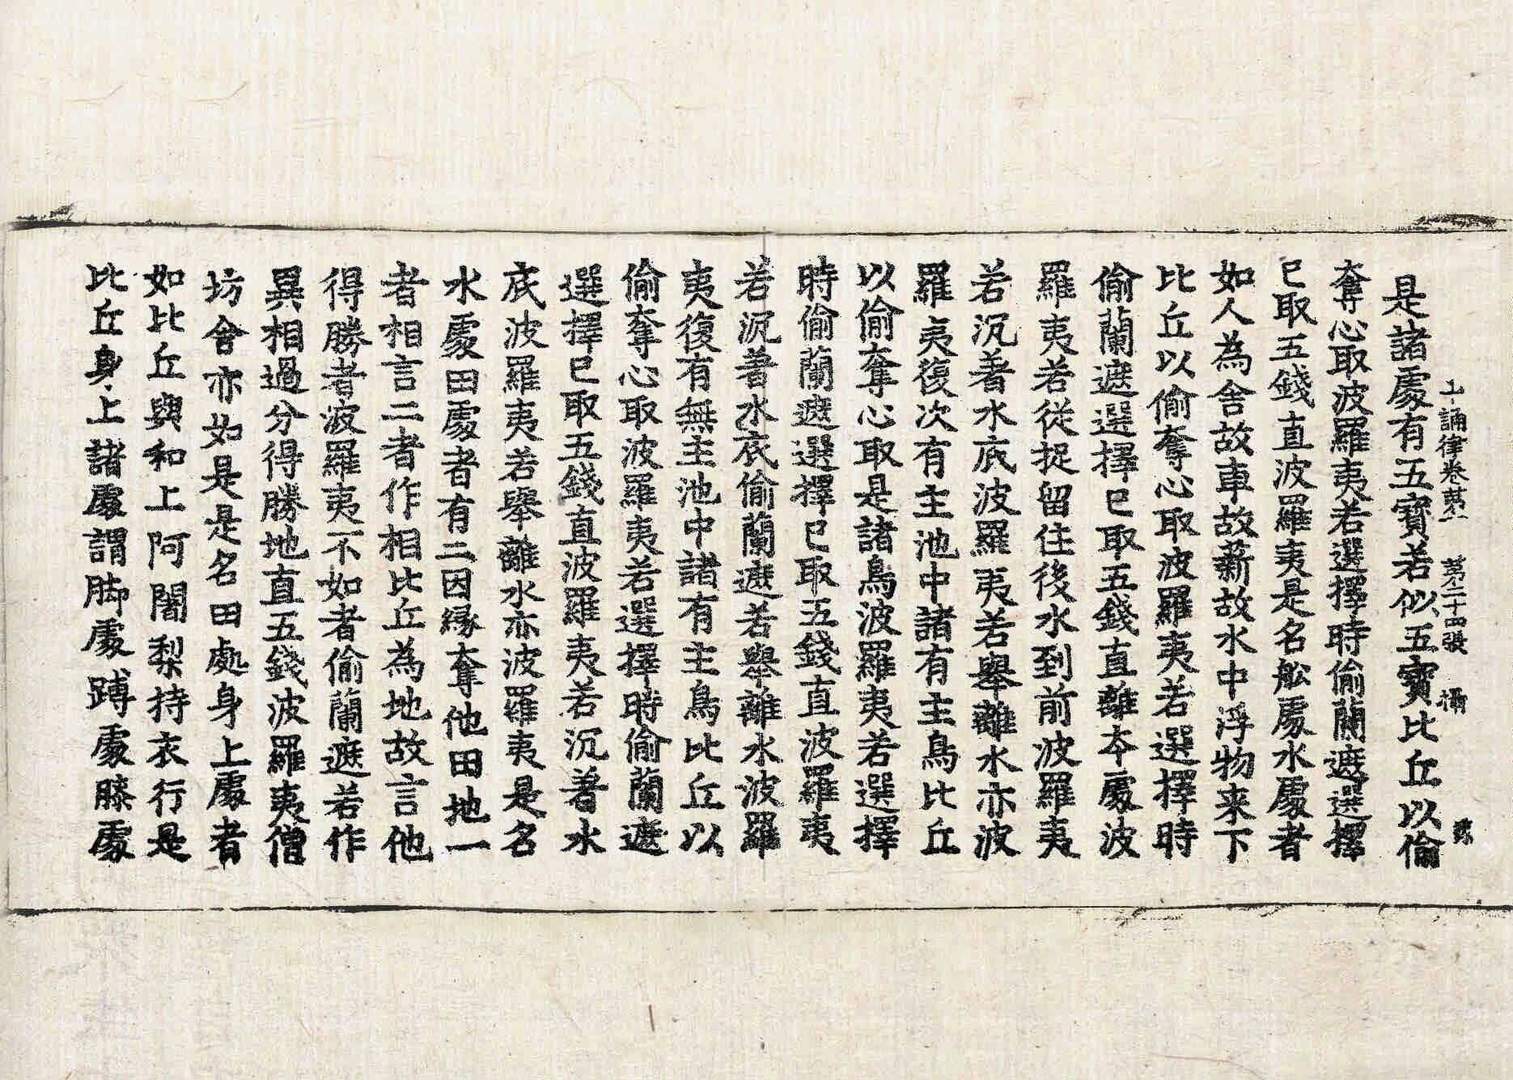 十誦律卷第一　第二十四張　攝
是諸處有五寶若似五寶比丘以偷
奪心取波羅夷若選擇時偷蘭遮選擇
已取五錢直波羅夷是名舩處水處者
如人為舍故車故薪故水中浮物来下
比丘以偷奪心取波羅夷若選擇時
偷蘭遮選擇已取五錢直離本處波
羅夷若從捉留住後水到前波羅夷
若沉著水底波羅夷若舉離水亦波
羅夷復次有主池中諸有主鳥比丘
以偷奪心取是諸鳥波羅夷若選擇
時偷蘭遮選擇已取五錢直波羅夷
若沉著水底偷蘭遮若舉離水波羅
夷復有無主池中諸有主鳥比丘以
偷奪心取波羅夷若選擇時偷蘭遮
選擇已取五錢直波羅夷若沉著水
底波羅夷若舉離水亦波羅夷是名
水處田處者有二因緣奪他田地一
者相言二者作相比丘為地故言他
得勝者波羅夷不如者偷蘭遮若作
異相過分得勝地直五錢波羅夷僧
坊舍亦如是是名田處身上處者
如比丘與和上阿闍梨持衣行是
比丘身上諸處謂脚處䏶處膝處